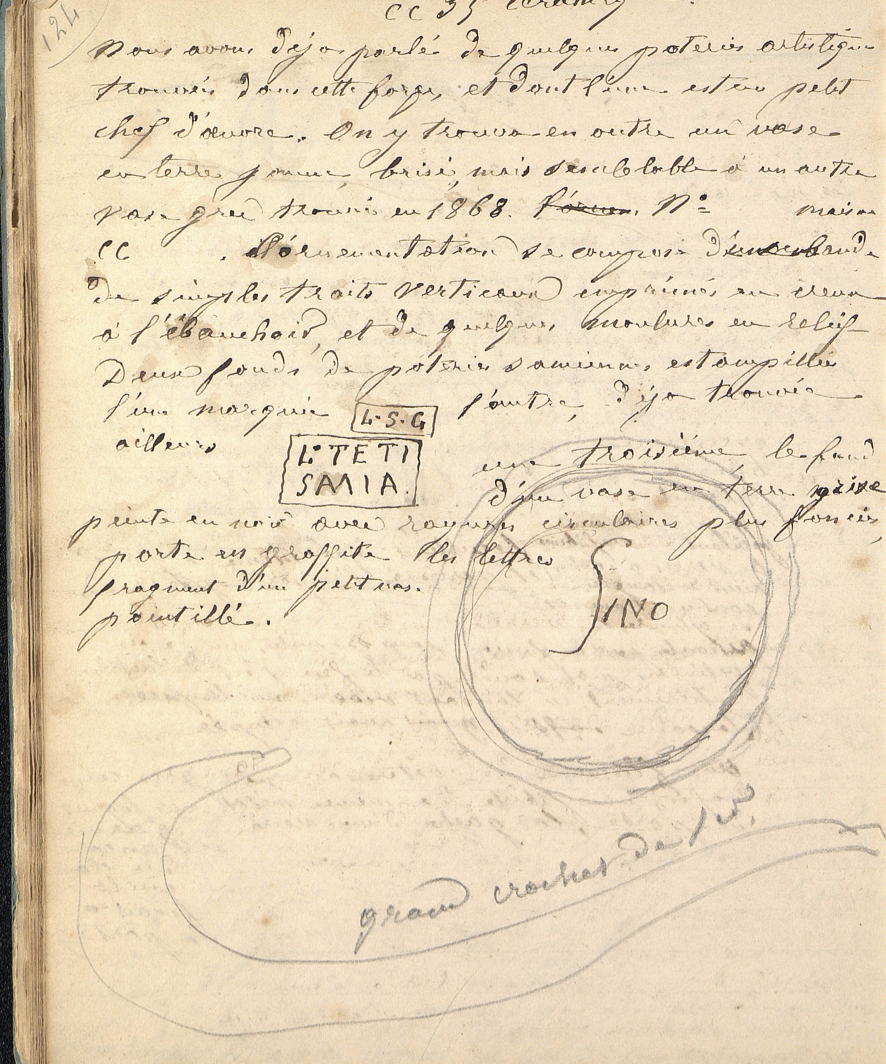 124
CC 35
Nous avons déjà parlé de quelques poteries artistiques
trouvées dans cette forge, et dont l'une est un petit
chef d'œuvre. On y trouva en outre un vase
en terre jaune, brisé, mais semblable à un autre
vase gris trouvé en 1868. N° maison
CC . l'ornementation se compose
de simples traits verticaux imprimés en creux
à l'ébauchoir, et de quelques moulures en relief
Deux fonds de poteries samiennes estampillés
l'un marqué L·S·G l'autre, déjà trouvée
ailleurs L·TETI
SAMIA. une troisième, le fond
d'un vase en terre grise
peinte en noir avec rayures circulaires plus foncées,
porte en graffite les lettres
fragment d'un petit vas.
pointillé.
SINO
grand crochet de fer